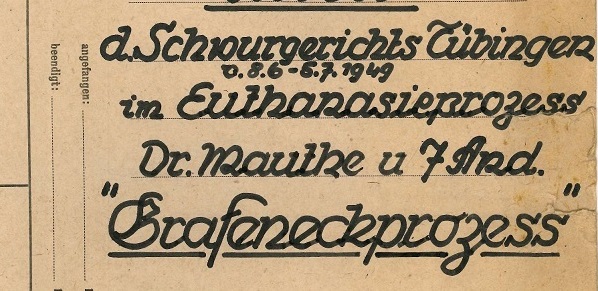 d. Schwurgerichts Tübingen
v. 8.6 - 5.7.1949
im Euthanasieprozess
Dr. Mauthe u 7 And.
"Grafeneckprozess"
angefangen:
beendigt: